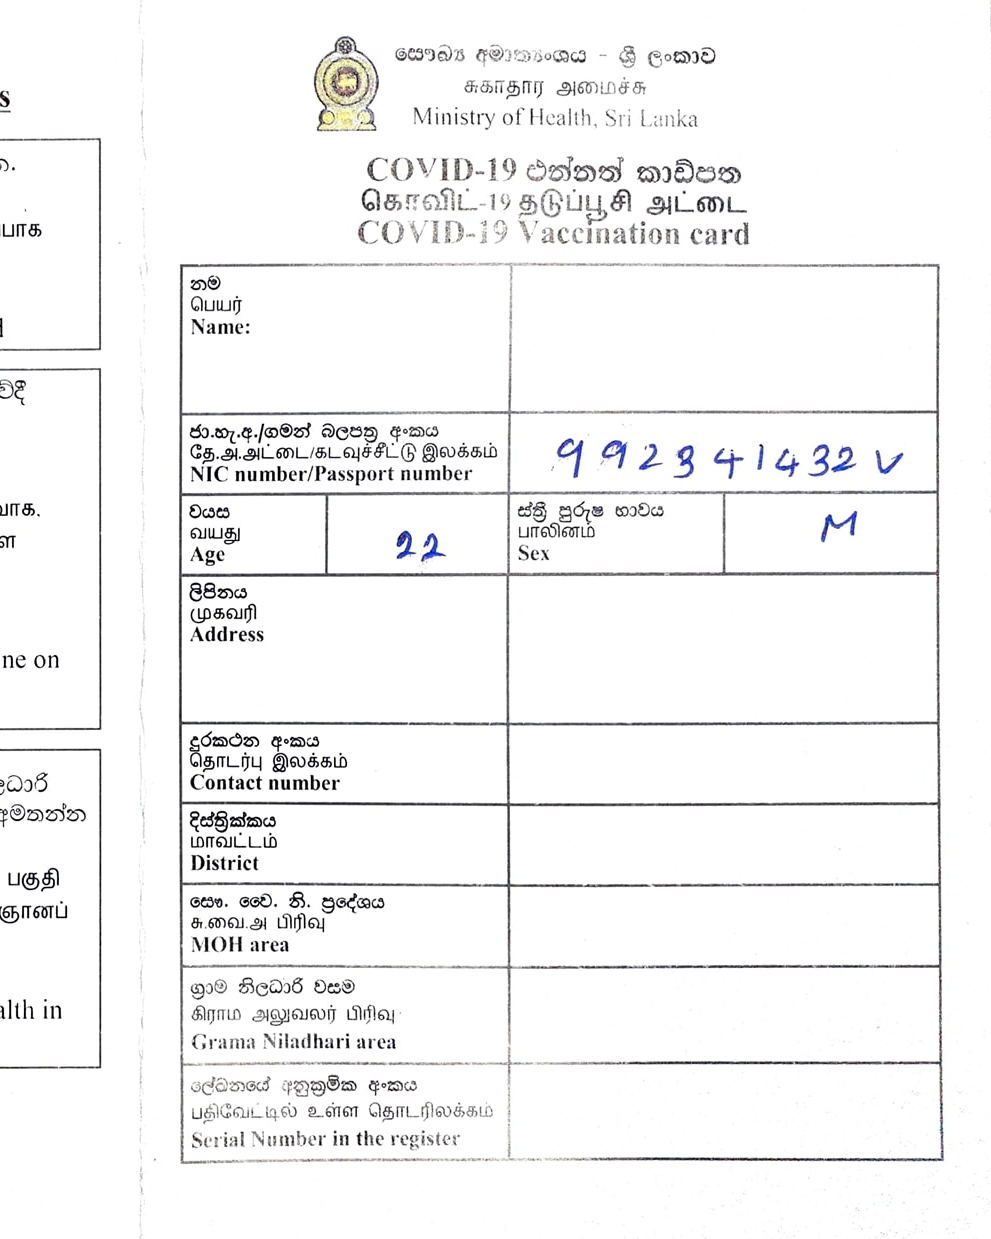 s
ත.
பாக
d
වදී
வாக.
ள
ne on
ලධාරි
අමතන්න
பகுதி
ஞானப்
alth in
සෞඛ්‍ය අමාත්‍යංශය - ශ්‍රී ලංකාව
சுகாதார அமைச்சு
Ministry of Health, Sri Lanka
COVID-19 එන්නත් කාඩ්පත
கொவிட்-19 தடுப்பூசி அட்டை
COVID-19 Vaccination card
නම
பெயர்
Name:
ජා.හැ.අ./ගමන් බලපත්‍ර අංකය
தே.அ.அட்டை/கடவுச்சீட்டு இலக்கம்
NIC number/Passport number
992341432V
වයස
வயது
Age
22
ස්ත්‍රී පුරුෂ භාවය
பாலினம்
Sex
M
ලිපිනය
முகவரி
Address
දුරකථන අංකය
தொடர்பு இலக்கம்
Contact number
දිස්ත්‍රික්කය
மாவட்டம்
District
සෞ. වෛ. නි. ප්‍රදේශය
சு.வை.அ பிரிவு
MOH area
ග්‍රාම නිලධාරි වසම
கிராம அலுவலர் பிரிவு
Grama Niladhari area
ලේඛනයේ අනුක්‍රමික අංකය
பதிவேட்டில் உள்ள தொடரிலக்கம்
Serial Number in the register